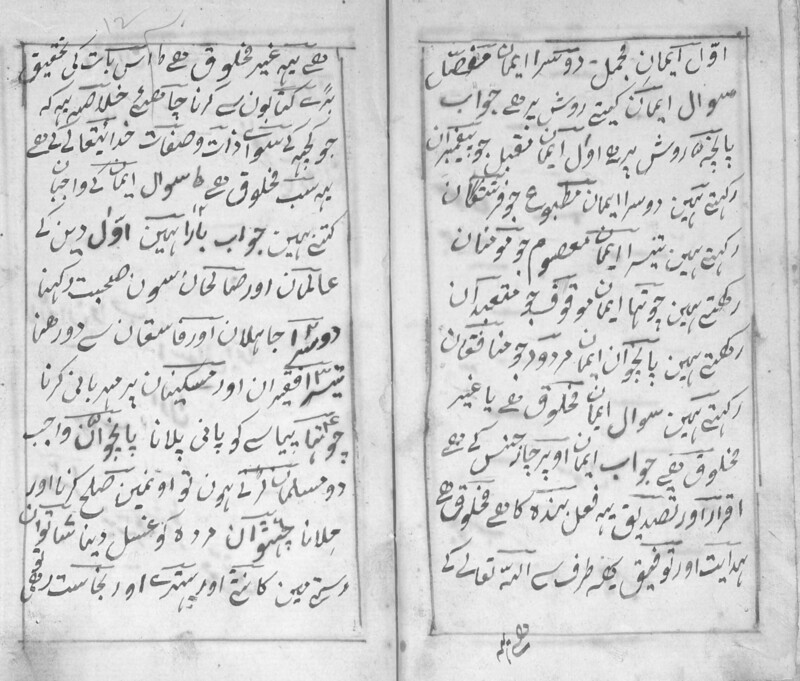 اوّل ایمان مجمل دوسرا ایمان مفصّل
سوال ایمان کیتے روش پر ھے جواب
پانچہ روش پر ھے اوّل ایمان مقبل جو پیغمبران
رکہتے ہین دوسرا ایمان مطبوع جو فرشتگان
رکہتے ہین تیسرا ایمان معصوم جو مومنان
رکھتے ہین چوتہا ایمان موقوف جو متعبدان
رکھتے ہین پانچوان ایمان مردود جو منافقان
رکہتے ہین سوال ایمان مخلوق ھے یا غیر
مخلوق ھے جواب ایمان اوپر چار جنس کے ھے
اقرار اور تصدیق یہہ فعل بندہ کا ھے مخلوق ھے
ہدایت اور توفیق یہہ طرف سے اللہ تعالیٰ کے
ھے یہہ
ھے یہہ غیر مخلوق ھے ط اس بات کی تحقیق
بڑے کتابون سے کرنا چاھئے خلاصہ یہہ کہ
جو کچہہ کے سوائے ذات و صفات خدایتعالی کے ھے
یہہ سب مخلوق ھے ط سوال ایمان کے واجبان
کتنے ہین جواب بارا ہین اوّل دین کے
عالمان اور صالحان سون صحبت رکہنا
دوسرا جاہلان اور فاسقان سے دور رھنا
تیسرا فقیران اور مسکینان پر مہربانی کرنا
چوتہا پیاسے کو پانی پلانا پانچوان واجب
دو مسلمان لڑتے ہون تو اونمین صلح کرنا اور
ملانا چھٹوان مردہ کو غسل دینا ساتوان
رستے مین کانٹے اور پہتر اور نجاست